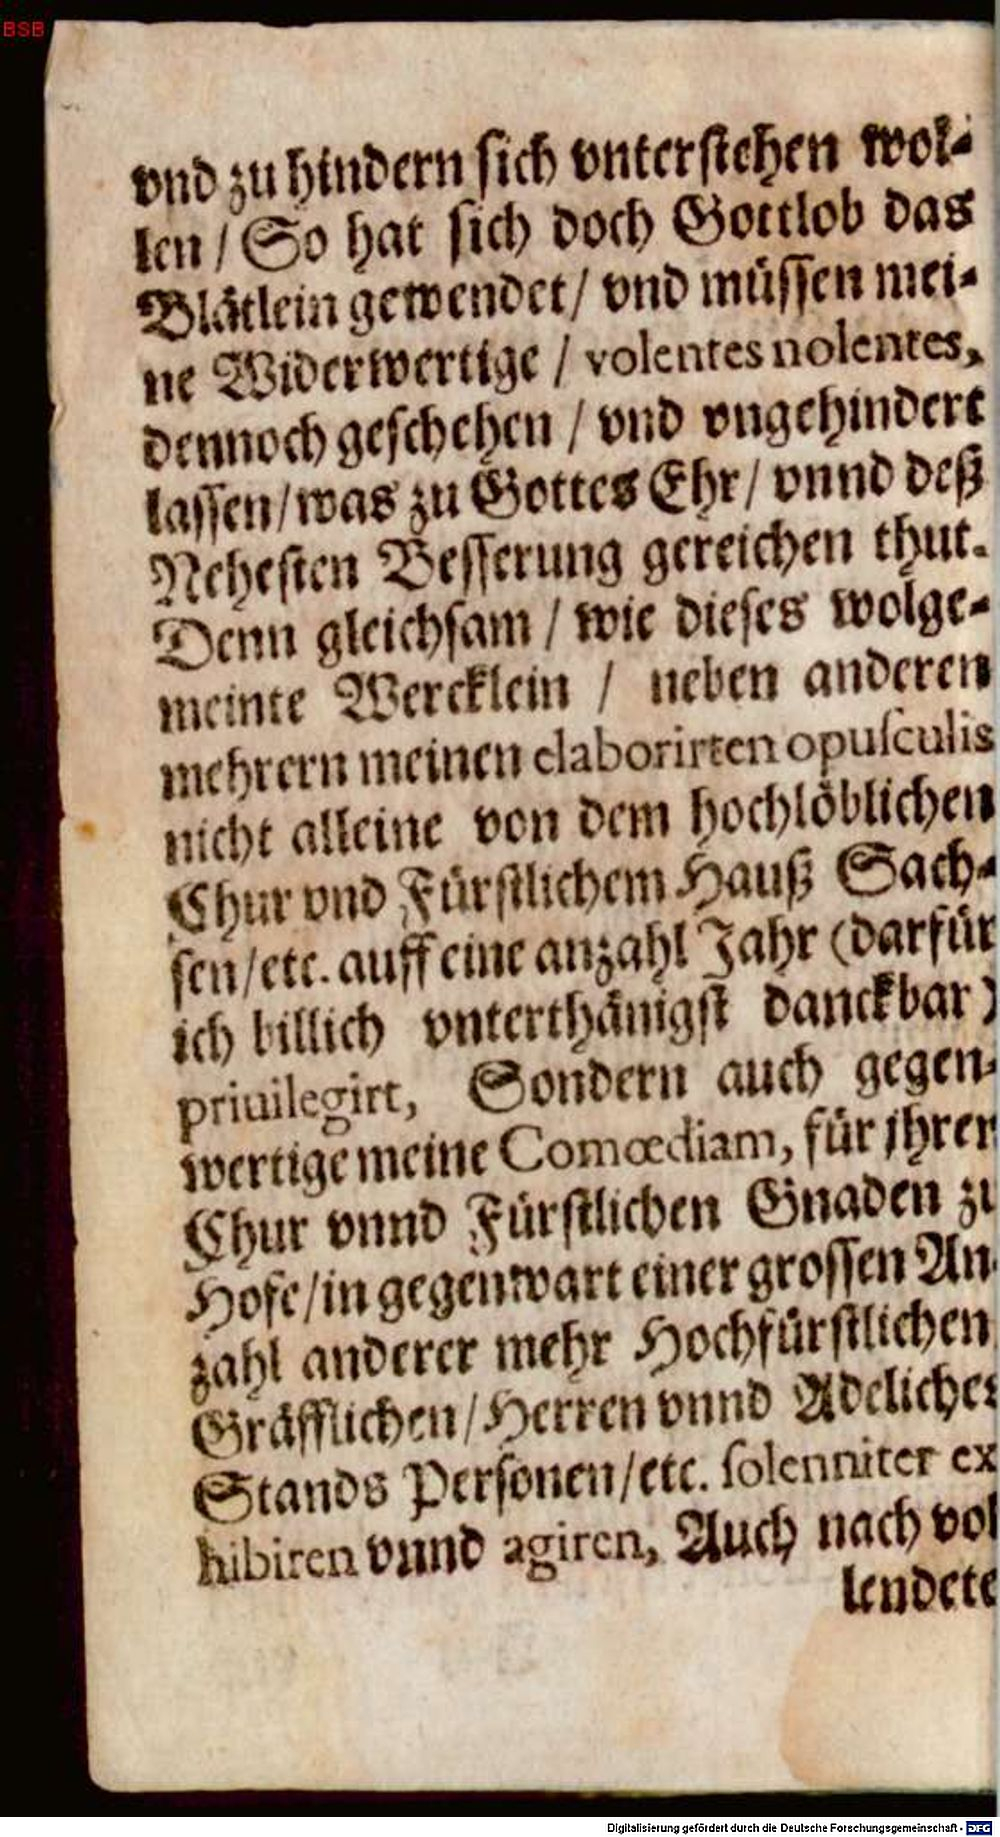 BSB
vnd zu hindern sich vnterstehen wol-
len / So hat sich doch Gottlob das
Blätlein gewendet / vnd müssen mei-
ne Widerwertige / volentes nolentes,
dennoch geschehen / vnd vngehindert
lassen / was zu Gottes Ehr / vnnd deß
Nehesten Besserung gereichen thut.
Denn gleichsam / wie dieses wolge-
meinte Wercklein / neben anderen
mehrern meinen elaborirten opusculis
nicht alleine von dem hochlöblichen
Chur vnd Fürstlichem Hauß Sach-
sen / etc. auff eine anzahl Jahr (darfür
ich billich vnterthänigst danckbar)
priuilegirt, Sondern auch gegen-
wertige meine Comœdiam, für jhrer
Chur vnnd Fürstlichen Gnaden zu
Hofe / in gegenwart einer grossen An-
zahl anderer mehr Hochfürstlichen
Gräfflichen / Herren vnnd Adeliches
Stands Personen / etc. solenniter ex
hibiren vnnd agiren, Auch nach vol
lendete
Digitalisierung gefördert durch die Deutsche Forschungsgemeinschaft - DFG